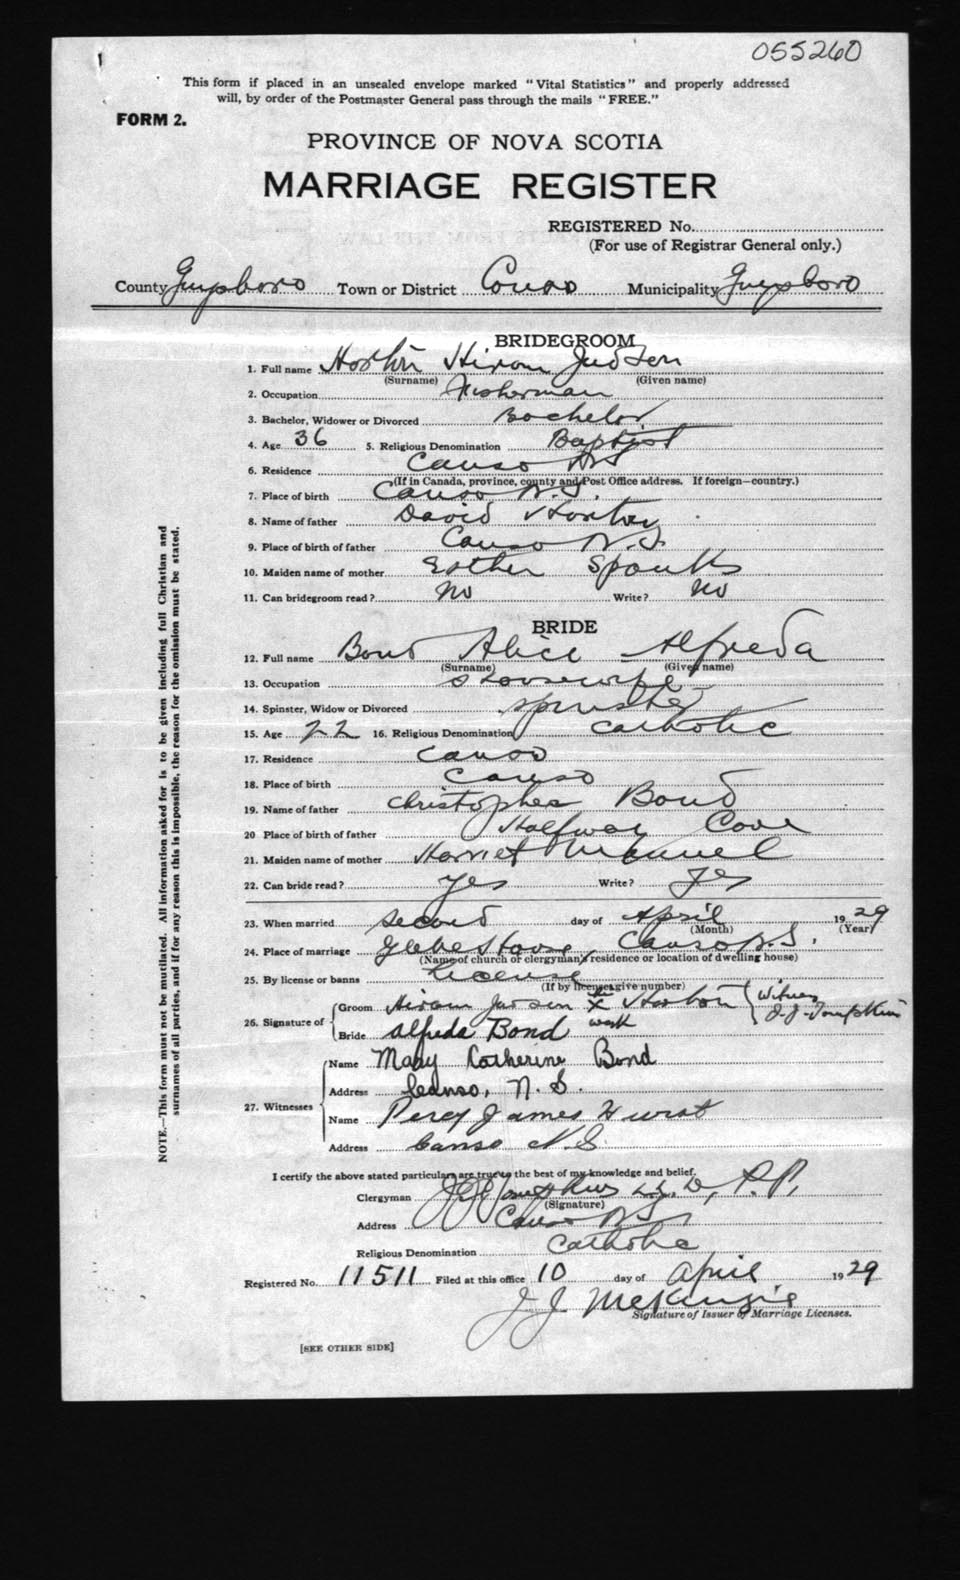 055260
This form if placed in an unsealed envelope marked "Vital Statistics" and properly addressed
will, by order of the Postmaster General pass through the mails "FREE."
FORM 2.
PROVINCE OF NOVA SCOTIA
MARRIAGE REGISTER
REGISTERED No.
(For use of Registrar General only.)
County Guysboro Town or District Canso Municipality Guysboro
BRIDEGROOM
1. Full name Horton Hiram Judson
(Surname) (Given name)
2. Occupation Fisherman
3. Bachelor, Widower or Divorced Bachelor
4. Age 36 5. Religious Denomination Baptist
6. Residence Canso NS
(If in Canada, province, county and Post Office address. If foreign—country.)
7. Place of birth Canso N.S.
8. Name of father David Horton
9. Place of birth of father Canso N.S.
10. Maiden name of mother Esther
11. Can bridegroom read? No Write? No
BRIDE
12. Full name Bond Alice Alfreda
(Surname) (Given name)
13. Occupation Housewife
14. Spinster, Widow or Divorced spinster
15. Age 22 16. Religious Denomination Catholic
17. Residence Canso
18. Place of birth Canso
19. Name of father Christopher Bond
20 Place of birth of father Halfway Cove
21. Maiden name of mother Harriet
22. Can bride read? yes Write? yes
23. When married second day of April 1929
(Month) (Year)
24. Place of marriage Glebe House, Canso N.S.
(Name of church or clergyman's residence or location of dwelling house)
25. By license or banns License
(If by license, give number)
26. Signature of Groom Hiram Judson his X Horton Witness
mark J. J. Tompkins
Bride Alfreda Bond
27. Witnesses Name Mary Catherine Bond
Address Canso, N. S.
Name Percy James Hurst
Address Canso N.S.
NOTE.—This form must not be mutilated. All information asked for is to be given including full Christian and
surnames of all parties, and if for any reason this is impossible, the reason for the omission must be stated.
I certify the above stated particulars are true to the best of my knowledge and belief.
Clergyman J J Tompkins P.P.
(Signature)
Address Canso NS
Religious Denomination Catholic
Registered No. 11511 Filed at this office 10 day of April 1929
J. J. McKenzie
Signature of Issuer of Marriage Licenses.
[SEE OTHER SIDE]